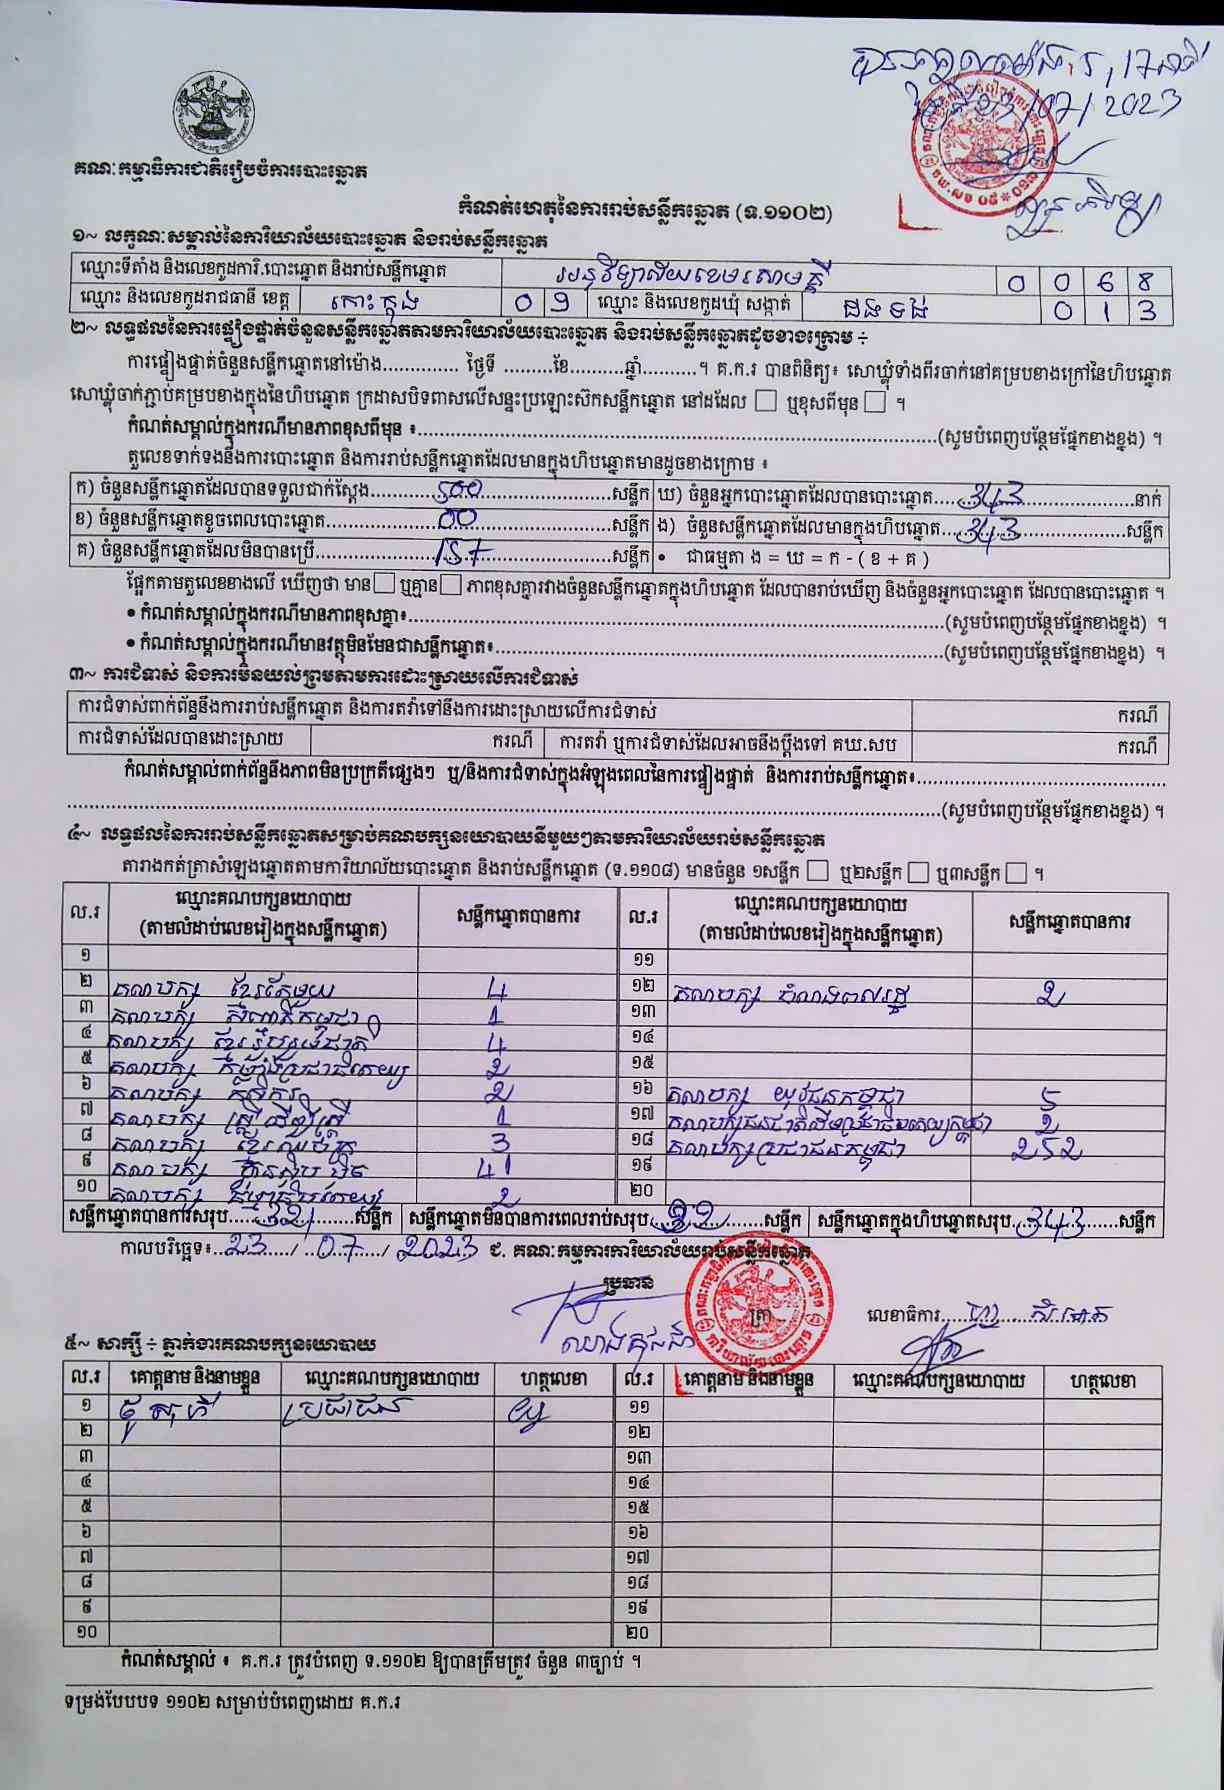 17 នាទី
/07/2023
គណៈកម្មាធិការជាតិរៀបចំការបោះឆ្នោត
កំណត់ហេតុនៃការរាប់សន្លឹកឆ្នោត (ទ.១១០២)
១~ លក្ខណៈសម្គាល់នៃការិយាល័យបោះឆ្នោត និងរាប់សន្លឹកឆ្នោត
ឈ្មោះទីតាំង និងលេខកូដការិ.បោះឆ្នោត និងរាប់សន្លឹកឆ្នោត 0 0 6 8
ឈ្មោះ និងលេខកូដរាជធានី ខេត្ត កោះកុង 0 9 ឈ្មោះ និងលេខកូដឃុំ សង្កាត់ ដងទង់ 0 1 3
២~ លទ្ធផលនៃការផ្ទៀងផ្ទាត់ចំនួនសន្លឹកឆ្នោតតាមការិយាល័យបោះឆ្នោត និងរាប់សន្លឹកឆ្នោតដូចខាងក្រោម ÷
ការផ្ទៀងផ្ទាត់ចំនួនសន្លឹកឆ្នោតនៅម៉ោង.............. ថ្ងៃទី .........ខែ..........ឆ្នាំ..........។ គ.ក.រ បានពិនិត្យ៖ សោឃ្លុំទាំងពីរចាក់នៅគម្របខាងក្រៅនៃហិបឆ្នោត
សោឃ្លុំចាក់ភ្ជាប់គម្របខាងក្នុងនៃហិបឆ្នោត ក្រដាសបិទពាសលើសន្ទះប្រឡោះស៊កសន្លឹកឆ្នោត នៅដដែល ☐ ឬខុសពីមុន ☐ ។
កំណត់សម្គាល់ក្នុងករណីមានភាពខុសពីមុន ៖..........(សូមបំពេញបន្ថែមផ្នែកខាងខ្នង) ។
តួលេខទាក់ទងនឹងការបោះឆ្នោត និងការរាប់សន្លឹកឆ្នោតដែលមានក្នុងហិបឆ្នោតមានដូចខាងក្រោម ៖
ក) ចំនួនសន្លឹកឆ្នោតដែលបានទទួលជាក់ស្តែង..........500..........សន្លឹក ឃ) ចំនួនអ្នកបោះឆ្នោតដែលបានបោះឆ្នោត.....343..........នាក់
ខ) ចំនួនសន្លឹកឆ្នោតខូចពេលបោះឆ្នោត..........00..........សន្លឹក ង) ចំនួនសន្លឹកឆ្នោតដែលមានក្នុងហិបឆ្នោត.....343..........សន្លឹក
គ) ចំនួនសន្លឹកឆ្នោតដែលមិនបានប្រើ..........157..........សន្លឹក • ជាធម្មតា ង = ឃ = ក - ( ខ + គ )
ផ្អែកតាមតួលេខខាងលើ ឃើញថា មាន☐ ឬគ្មាន☐ ភាពខុសគ្នារវាងចំនួនសន្លឹកឆ្នោតក្នុងហិបឆ្នោត ដែលបានរាប់ឃើញ និងចំនួនអ្នកបោះឆ្នោត ដែលបានបោះឆ្នោត ។
• កំណត់សម្គាល់ក្នុងករណីមានភាពខុសគ្នា៖..........(សូមបំពេញបន្ថែមផ្នែកខាងខ្នង) ។
• កំណត់សម្គាល់ក្នុងករណីមានវត្ថុមិនមែនជាសន្លឹកឆ្នោត៖..........(សូមបំពេញបន្ថែមផ្នែកខាងខ្នង) ។
៣~ ការជំទាស់ និងការមិនយល់ព្រមតាមការដោះស្រាយលើការជំទាស់
ការជំទាស់ពាក់ព័ន្ធនឹងការរាប់សន្លឹកឆ្នោត និងការតវ៉ាទៅនឹងការដោះស្រាយលើការជំទាស់ ករណី
ការជំទាស់ដែលបានដោះស្រាយ ករណី ការតវ៉ា ឬការជំទាស់ដែលអាចនឹងប្តឹងទៅ គឃ.សប ករណី
កំណត់សម្គាល់ពាក់ព័ន្ធនឹងភាពមិនប្រក្រតីផ្សេងៗ ឬ/និងការជំទាស់ក្នុងអំឡុងពេលនៃការផ្ទៀងផ្ទាត់ និងការរាប់សន្លឹកឆ្នោត៖..........
..........(សូមបំពេញបន្ថែមផ្នែកខាងខ្នង) ។
៤~ លទ្ធផលនៃការរាប់សន្លឹកឆ្នោតសម្រាប់គណបក្សនយោបាយនីមួយៗតាមការិយាល័យរាប់សន្លឹកឆ្នោត
តារាងកត់ត្រាសំឡេងឆ្នោតតាមការិយាល័យបោះឆ្នោត និងរាប់សន្លឹកឆ្នោត (ទ.១១០៨) មានចំនួន ១សន្លឹក ☐ ឬ២សន្លឹក ☐ ឬ៣សន្លឹក ☐ ។
ល.រ ឈ្មោះគណបក្សនយោបាយ (តាមលំដាប់លេខរៀងក្នុងសន្លឹកឆ្នោត) សន្លឹកឆ្នោតបានការ ល.រ ឈ្មោះគណបក្សនយោបាយ (តាមលំដាប់លេខរៀងក្នុងសន្លឹកឆ្នោត) សន្លឹកឆ្នោតបានការ
១ ១១
២ គណបក្ស ខ្មែរតែមួយ 4 ១២ គណបក្ស 2
៣ គណបក្ស 1 ១៣
៤ គណបក្ស ខ្មែររួបរួមជាតិ 4 ១៤
៥ គណបក្ស កម្លាំងប្រជាធិបតេយ្យ 2 ១៥
៦ គណបក្ស កសិករ 2 ១៦ គណបក្ស យុវជនកម្ពុជា 5
៧ គណបក្ស ស្ត្រីដើម្បីស្ត្រី 1 ១៧ គណបក្ស 2
៨ គណបក្ស ខ្មែរ 3 ១៨ គណបក្សប្រជាជនកម្ពុជា 252
៩ គណបក្ស ហ្វ៊ុនស៊ិនប៉ិច 41 ១៩
១០ គណបក្ស 2 ២០
សន្លឹកឆ្នោតបានការសរុប.....321.......សន្លឹក សន្លឹកឆ្នោតមិនបានការពេលរាប់សរុប...22.......សន្លឹក សន្លឹកឆ្នោតក្នុងហិបឆ្នោតសរុប...343......សន្លឹក
កាលបរិច្ឆេទ៖..23..../..07..../ 2023 ជ. គណៈកម្មការការិយាល័យរាប់សន្លឹកឆ្នោត
ប្រធាន
ត្រា
លេខាធិការ..........
៥~ សាក្សី ÷ ភ្នាក់ងារគណបក្សនយោបាយ
ល.រ គោត្តនាម និងនាមខ្លួន ឈ្មោះគណបក្សនយោបាយ ហត្ថលេខា ល.រ គោត្តនាម និងនាមខ្លួន ឈ្មោះគណបក្សនយោបាយ ហត្ថលេខា
១ ប្រជាជន ១១
២ ១២
៣ ១៣
៤ ១៤
៥ ១៥
៦ ១៦
៧ ១៧
៨ ១៨
៩ ១៩
១០ ២០
កំណត់សម្គាល់ ៖ គ.ក.រ ត្រូវបំពេញ ទ.១១០២ ឱ្យបានត្រឹមត្រូវ ចំនួន ៣ច្បាប់ ។
ទម្រង់បែបបទ ១១០២ សម្រាប់បំពេញដោយ គ.ក.រ